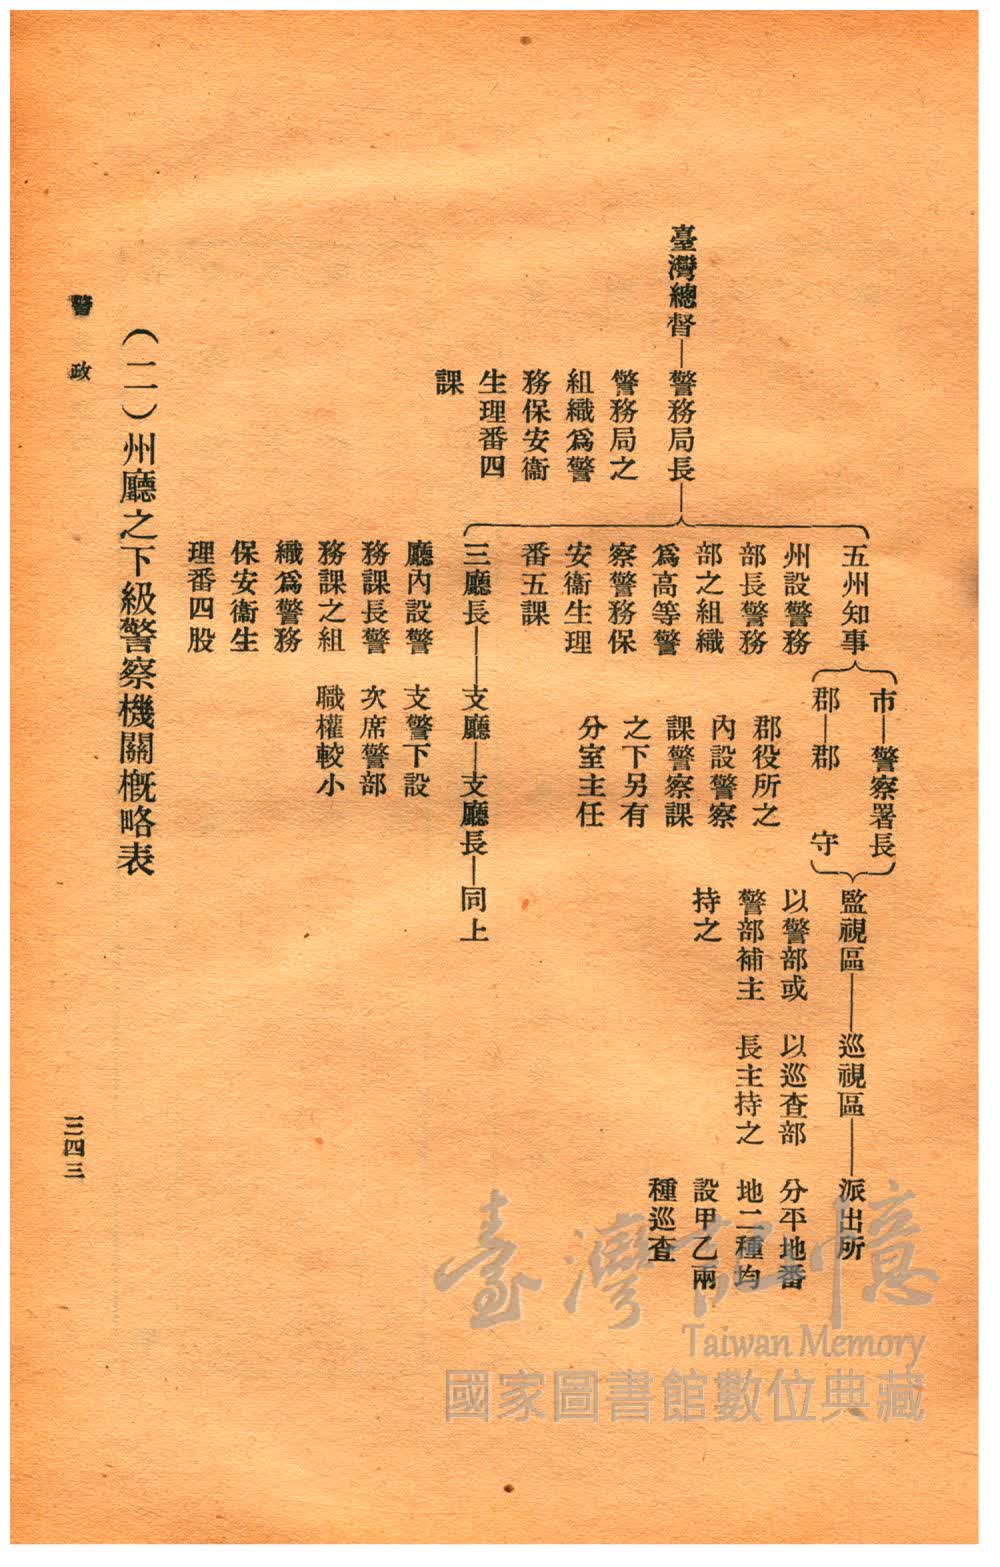 臺灣總督—警務局長
警務局之
組織爲警
務保安衞
生理番四
課
五州知事
州設警務
部長警務
部之組織
爲高等警
察警務保
安衞生理
番五課
市—警察署長
郡—郡守
郡役所之
內設警察
課警察課
之下另有
分室主任
監視區—巡視區—派出所
以警部或
警部補主
持之
以巡查部
長主持之
分平地番
地二種均
設甲乙兩
種巡查
三廳長—支廳—支廳長—同上
廳內設警
務課長警
務課之組
織爲警務
保安衞生
理番四股
支警下設
次席警部
職權較小
(二)州廳之下級警察機關概略表
警政
三四三
臺灣記憶
Taiwan Memory
國家圖書館數位典藏